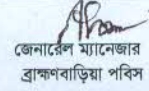 জেনারেল ম্যানেজার
ব্রাহ্মণবাড়িয়া পবিস